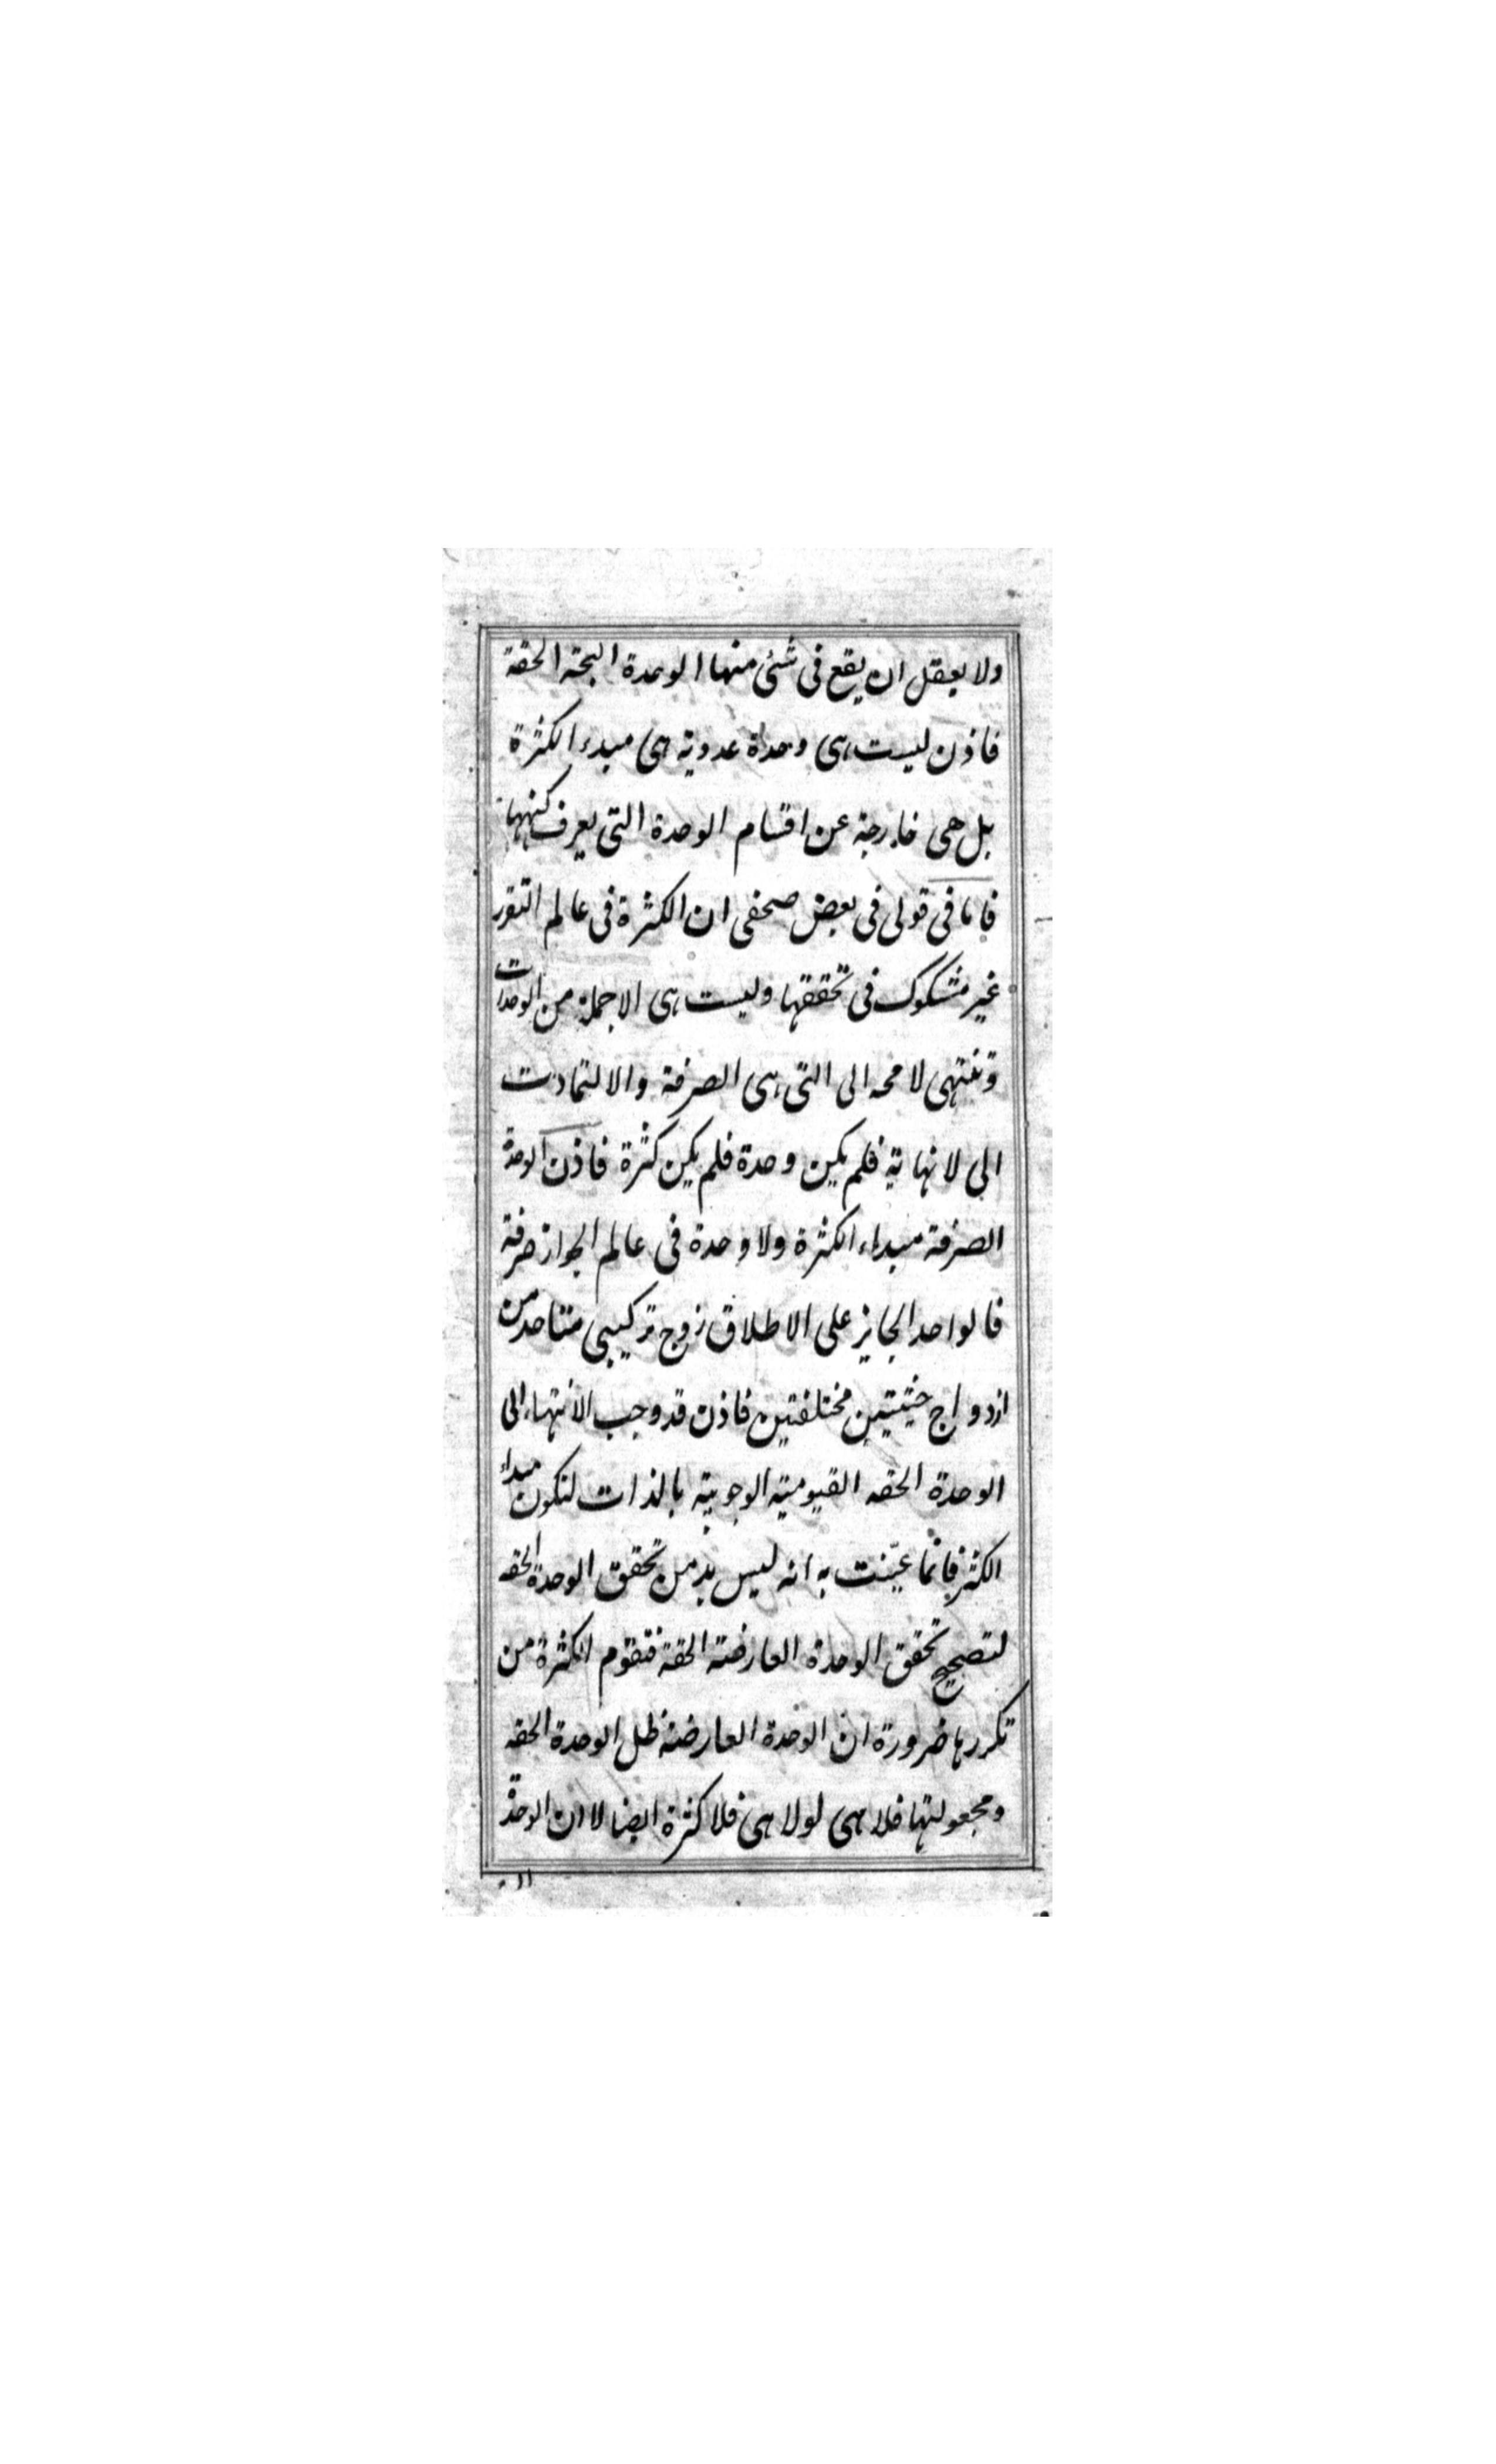 ولا يعقل ان يقع فى شئ منها الوحدة البحتة الحقة
فاذن ليست هى وحدة عددية هى مبدء الكثرة
بل هى خارجة عن اقسام الوحدة التى يعرف كنهها
فاما فى قولى فى بعض صحفى ان الكثرة فى عالم التقرر
غير مشكوك فى تحققها وليست هى الا جملة من الوحدات
وتنتهى لا محه الى التى هى الصرفة والا لتمادت
الى لا نهاية فلم يكن وحدة فلم يكن كثرة فاذن الوحدة
الصرفة مبداء الكثرة ولا وحدة فى عالم الجواز صرفة
فالواحد الجايز على الاطلاق زوج تركيبى متاحد من
ازدواج حيثيتين مختلفتين فاذن قد وجب الانتهاء الى
الوحدة الحقه القيومية الوجوبية بالذات لتكون مبداء
الكثر فانما عيّنت به انه ليس بد من تحقق الوحدة الحقه
لتصحيح تحقق الوحدة العارضة الحقة فتقوم الكثرة من
تكررها ضرورة ان الوحدة العارضة ظل الوحدة الحقه
ومجعولتها فلا هى لولا هى فلا كثرة ايضا لا ان الوحدة